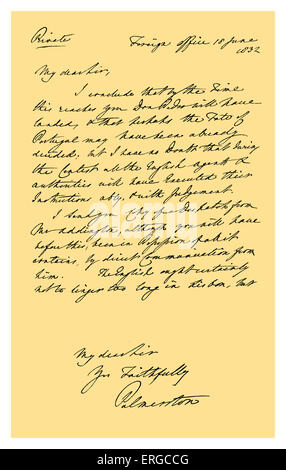 Private
Foreign Office 18 June
1832
My dear Sir,
I conclude that by the Time
this reaches you Don Pedro will have
landed, & that perhaps the Fate of
Portugal may have been already
decided, but I have no Doubt that during
the Contest all the English agents &
authorities will have Executed their
Instructions ably & with Judgement.
I send you Copy of a Dispatch from
Mr Addington, although you will have
before this, been in possession of what it
contains, by direct communication from
him. The English ought certainly
not to linger too long in Lisbon, but
My dear Sir
Yrs Faithfully
Palmerston
alamy stock photo
ERGCCG
www.alamy.com